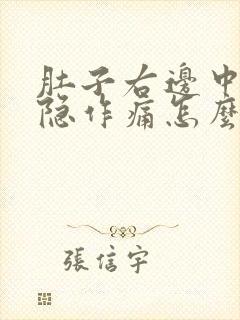 肚子右邊中
隐作痛怎麽
張信宇